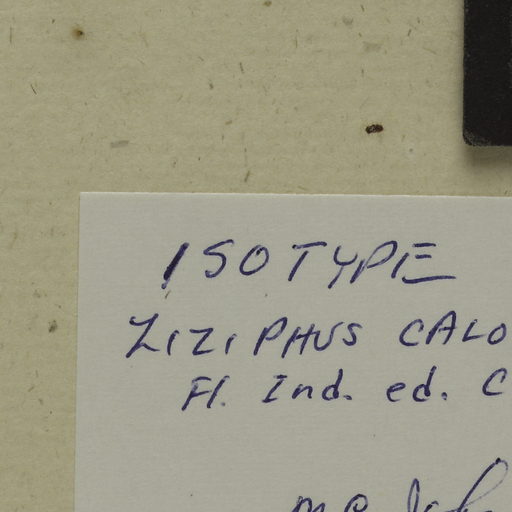 ISOTYPE
ZIZIPHUS CALO
Fl. Ind. ed. C